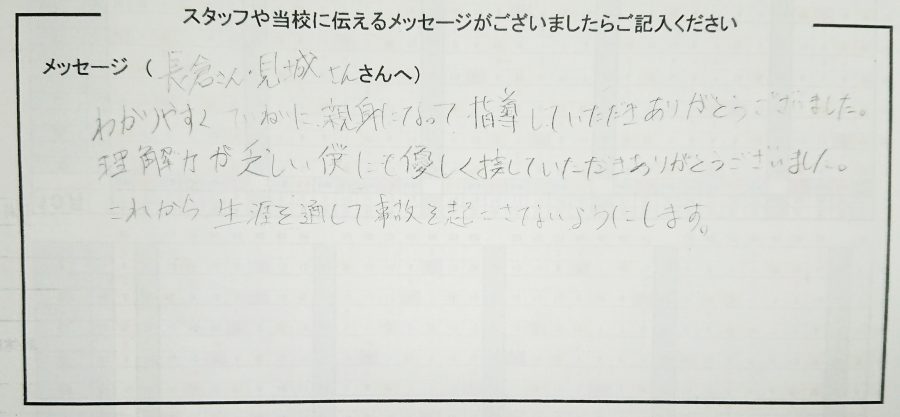 スタッフや当校に伝えるメッセージがございましたらご記入ください
メッセージ ( 長倉さん・見城さん さんへ)
わかりやすく ていねいに 親身になって 指導していただきありがとうございました。
理解力が乏しい僕にも優しく接していただきありがとうございました。
これから 生涯を通して事故を起こさないようにします。